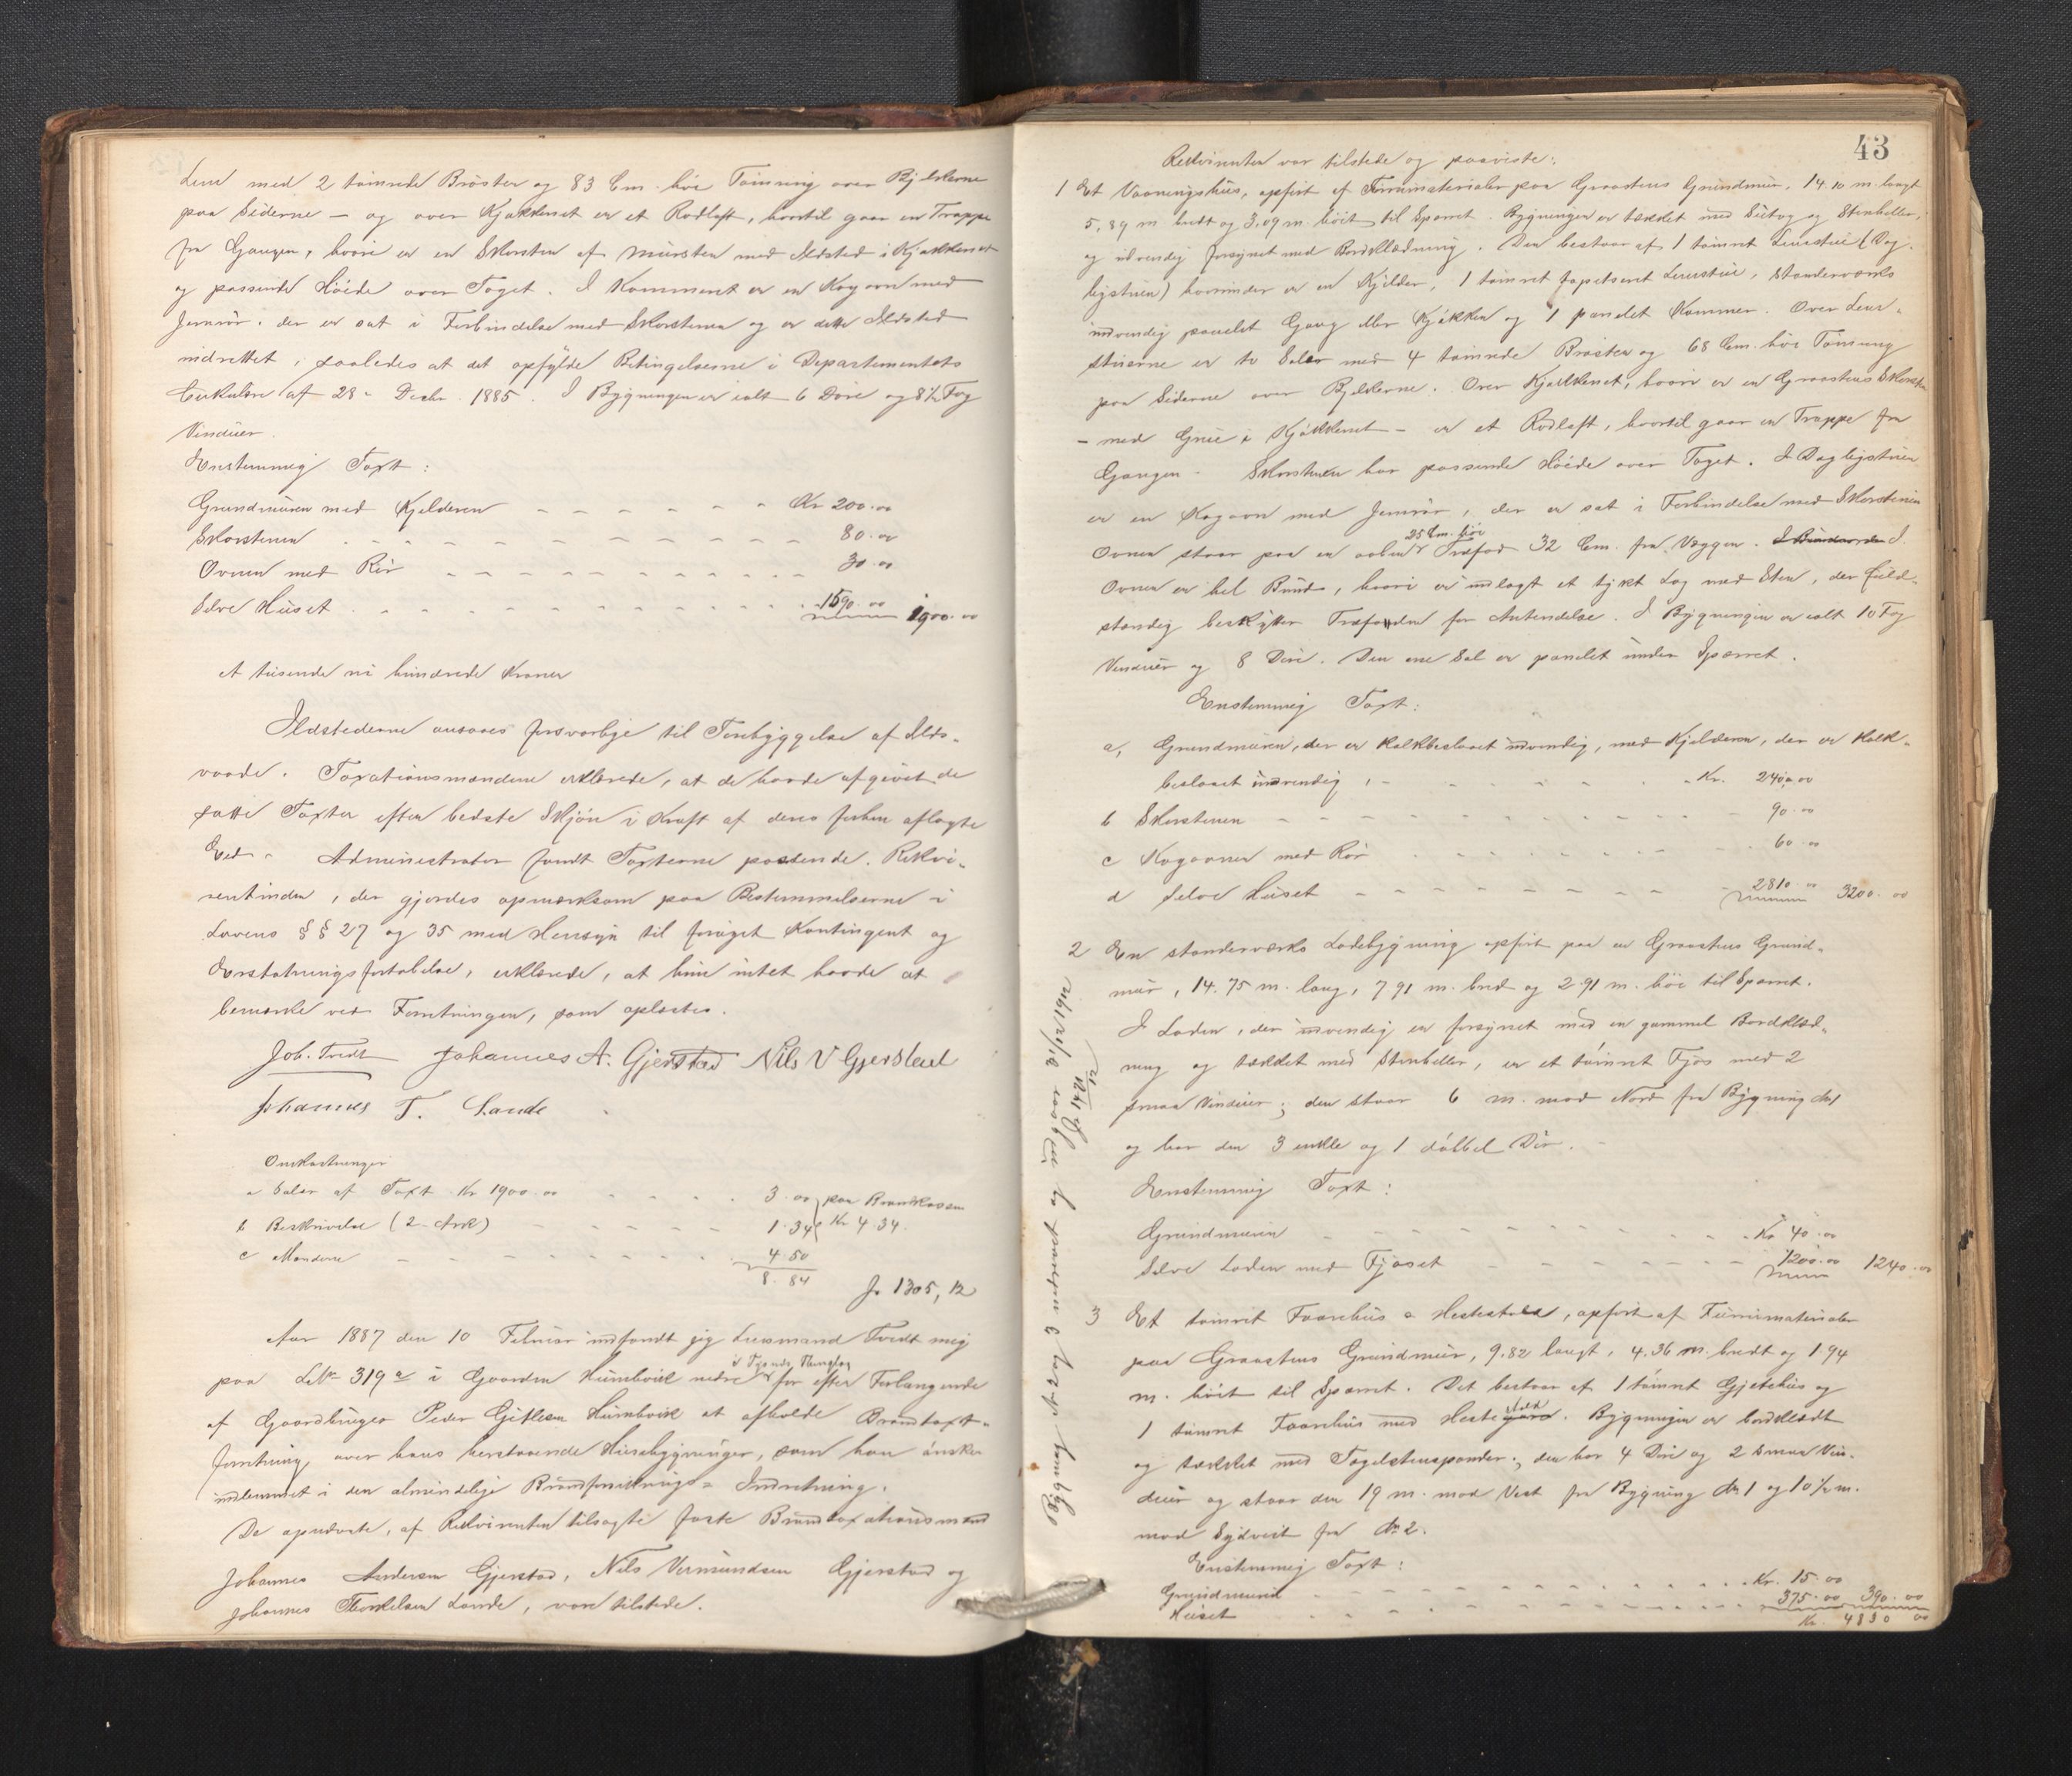 Lem med 2 tømrede Brøster og 83 Cm. høi Tømring over Bjelkerne
paa Siderne - og over Kjøkkenet er et Rodloft, hvortil gaar en Trappe
fra Gangen, hvori er en Skorsten af Mursten med Ildsted i Kjøkkenet
og passende Høide over Taget. I Kammeret er en Kogovn med
Jernrør, der er sat i Forbindelse med Skorstenen og er dette Ildsted
indrettet, saaledes at det opfylde Betingelserne i Departementets
Cirkulære af 28 Decbr. 1885. I Bygningen er ialt 6 Døre og 8½ Fag
Vinduer.
Enstemmig Taxt:
Grundmuren med Kjelderen - - - - - - Kr 200.00
Skorstenen - - - - - - 80.00
Ovnen med Rør - - - - - - 30.00
Selve Huset - - - - - - 1590.00 1900.00
Et tusende ni hundrede Kroner
Ildstederne ansaaes forsvarlige til Forebyggelse af Ilds-
vaade. Taxationsmændene erklærede, at de havde afgivet de
satte Taxter efter bedste Skjøn i Kraft af deres forhen aflagte
Ed. Administrator fandt Taxterne passende. Rekvi-
rentinden, der gjordes opmærksom paa Bestemmelserne i
Lovens §§ 27 og 35 med Hensyn til forøget Kontingent og
Erstatningsfortabelse, erklærede, at hun intet havde at
bemærke ved Forretningen, som oplæstes.
Joh. Tvedt Johannes A. Gjerstad Nils V Gjerstad
Johannes T. Lande
Omkostninger
a Salær af Taxt Kr 1900.00 - - - - 3.00 paa Brandkassen
b Beskrivelse (2 Ark) - - - - 1.34 Kr 4.34.
c Mændene - - - - - - 4.50
8.84
Jr 1305, 12
Aar 1887 den 10 Februar indfandt jeg Lensmand Tvedt mig
i Tysnes Thinglag
paa LNr 319 a i Gaarden Humbvik nedre for efter Forlangende
af Gaardbruger Peder Gitlesen Humbvik at afholde Brandtaxt-
forretning over hans herstaaende Husebygninger, som han ønsker
indlemmet i den almindelige Brandforsikrings-Indretning.
De opnævnte, af Rekvirenten tilsagte faste Brandtaxationsmænd
Johannes Andersen Gjerstad, Nils Vermundsen Gjerstad og
Johannes Thorkelsen Lande, vare tilstede.
43
Rekvirenten var tilstede og paaviste:
1 Et Vaaningshus, opført af Furumaterialer paa Graastens Grundmur, 14.10 m. langt
5,89 m. bredt og 3,09 m. høit til Sparret. Bygningen er tækket med Sutag og Stenheller,
og udvendig forsynet med Bordklædning. Den bestaar af 1 tømret Lemstue (Dag-
ligstuen) hvorunder er en Kjelder, 1 tømret tapetseret Lemstue, standerværks
indvendig panelet Gang eller Kjøkken og 1 panelet Kammer. Over Lem-
stuerne er to Saler med 4 tømrede Brøster og 68 Cm. høi Tømring
paa Siderne over Bjelkerne. Over Kjøkkenet, hvori er en Graastens Skorsten
- med Grue i Kjøkkenet - er et Rodloft, hvortil gaar en Trappe fra
Gangen. Skorstenen har passende Høide over Taget. I Dagligstuen
er en Kogovn med Jernrør, der er sat i Forbindelse med Skorstenen
25 Cm. høi
Ovnen staar paa en aaben Træfod 32 Cm. fra Væggen. I
Ovnen er hel Bund, hvori er indlagt et tykt Lag med Sten, der fuld-
stændig beskytter Træfoden for Antændelse. I Bygningen er ialt 10 Fag
Vinduer og 8 Døre. Den ene Sal er panelet under Sparret.
Enstemmig Taxt:
a, Grundmuren, der er kalkbeslaaet udvendig, med Kjelderen, der er kalk-
beslaaet indvendig, - - - - Kr. 240.00
b Skorstenen - - - - - - 90.00
c Kogovnen med Rør - - - - 60.00
d Selve Huset - - - - - - 2810.00 3200.00
2 En standerværks Ladebygning opført paa en Graastens Grund-
mur, 14.75 m. lang, 7 91 m. bred og 2.91 m. høi til Sparret.
I Laden, der udvendig er forsynet med en gammel Bordklæd-
ning og tækket med Stenheller, er et tømret Fjøs med 2
smaa Vinduer; den staar 6 m. mod Nord fra Bygning No 1
og har den 3 enkle og 1 dobbel Dør.
Enstemmig Taxt:
Grundmuren - - - - - - Kr 40.00
Selve Laden med Fjøset - - - - 1200.00 1240.00
3 Et tømret Faarehus a Hestestald, opført af Furumaterialer
paa Graastens Grundmur, 9.82 langt, 4.36 m. bredt og 1.94
m. høit til Sparret. Det bestaar af 1 tømret Gjetehus og
stald
1 tømret Faarehus med Heste. Bygningen er bordklædt
og tækket med Tagelstenspander; den har 4 Døre og 2 smaa Vin-
duer og staar den 19 m. mod Vest fra Bygning No 1 og 10½ m.
mod Sydvest fra No 2.
Enstemmig Taxt:
Grundmuren - - - - - - Kr. 15.00
Huset - - - - - - 375.00 390.00
Kr. 4830 00